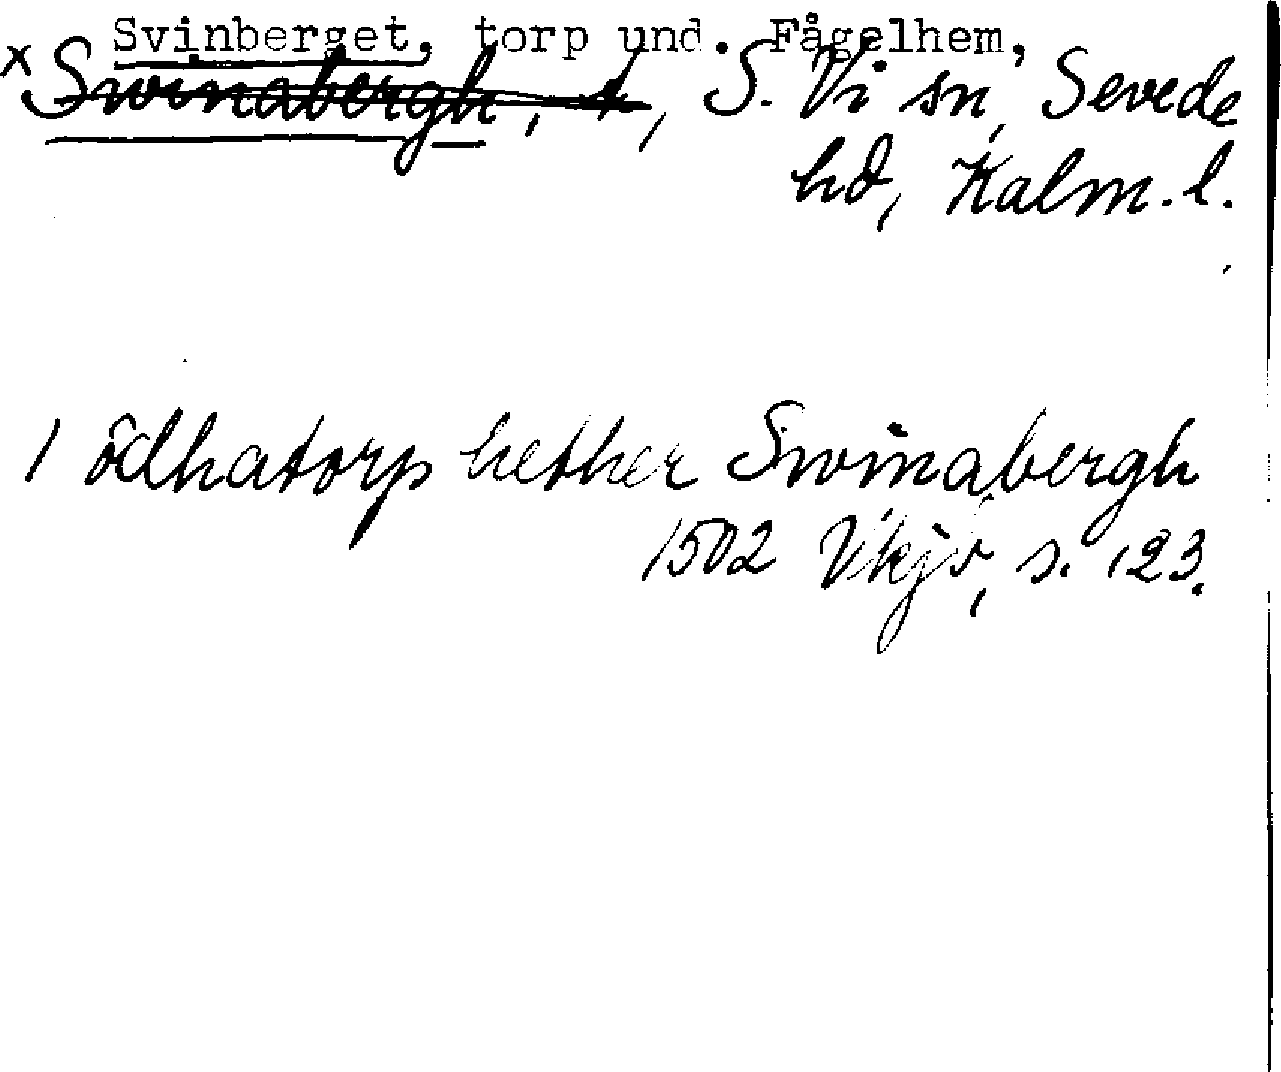 Svinberget, torp und. Fågelhem,
x Swinabergh, t, S. Vi sn, Sevede
hd, Kalm. l.
1 ödhatorp hether Swinabergh
1502 Vkjb, s. 123.